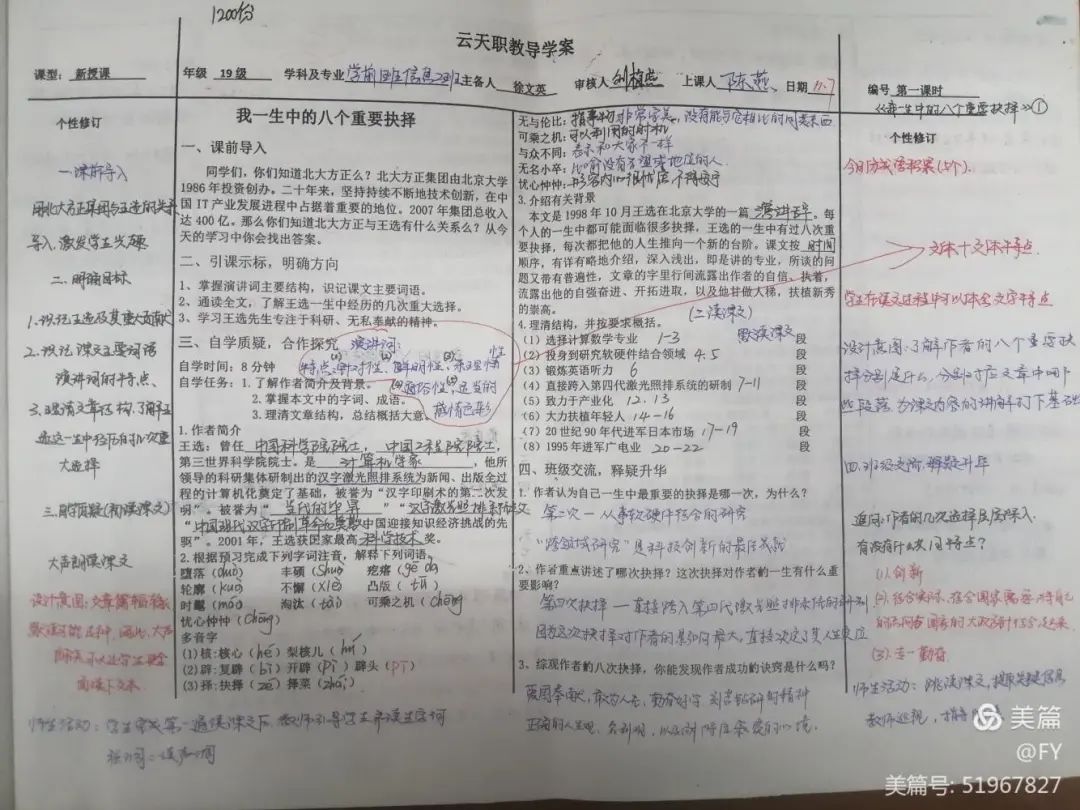 1200份
云天职教导学案
课型: 新授课
年级 19级 学科及专业 学前1班信息2班 主备人 徐文英 审核人 刘植点 上课人 陈燕 日期 11.7
编号 第一课时
《我一生中的八个重要抉择》①
个性修订
一.课前导入
用北大方正集团与王选的关系
导入,激发学生兴趣
二.明确目标
1.识记王选及其重大贡献
2.识记课文主要词语
演讲词的特点、
3.理清文章结构,了解王
选这一生中经历的几次重
大选择
三.自学质疑(初读课文)
大声朗读课文
设计意图:文章篇幅较长
我一生中的八个重要抉择
一、课前导入
同学们,你们知道北大方正么?北大方正集团由北京大学
1986年投资创办。二十年来,坚持持续不断地技术创新,在中
国IT产业发展进程中占据着重要的地位。2007年集团总收入
达400亿。那么你们知道北大方正与王选有什么关系么?从今
天的学习中你会找出答案。
二、引课示标,明确方向
1、掌握演讲词主要结构,识记课文主要词语。
2、通读全文,了解王选一生中经历的几次重大选择。
3、学习王选先生专注于科研、无私奉献的精神。
三、自学质疑,合作探究 演讲词:
自学时间:8分钟 特点:针对性、鲜明性、条理性
自学任务:1.了解作者简介及背景。 通俗性、适当的
2.掌握本文中的字词、成语。 感情色彩
3.理清文章结构,总结概括大意。
1.作者简介
王选:曾任 中国科学院院士,中国工程院院士,
第三世界科学院院士。是 计算机学家 ,他所
领导的科研集体研制出的汉字激光照排系统为新闻、出版全过
程的计算机化奠定了基础,被誉为“汉字印刷术的第二次发
明”。被誉为“ 当代的毕昇 ”“汉字激光照排系统之父
“中国现代汉字印刷革命的奠基中国迎接知识经济挑战的先
驱”。2001年,王选获国家最高 科学技术 奖。
2.根据预习完成下列字词注音,解释下列词语。
堕落(duò) 丰硕(shuò) 疙瘩(gē da)
轮廓(kuò) 不懈(xiè) 凸版(tū)
时髦(máo) 淘汰(tài) 可乘之机(chéng)
忧心忡忡(chōng)
多音字
(1)核:核心(hé)梨核儿(hú)
(2)辟:复辟(bì)开辟(pì)辟头(pī)
(3)择:抉择(zé)择菜(zhái)
师生活动:学生完成第一遍读课文后,教师引导学生齐读生字词
无与伦比:指事物非常完美,没有能与它相比的同类东西
可乘之机:可以利用的时机
与众不同:表示和大家不一样
无名小卒:比喻没有名望或地位的人.
忧心忡忡:形容内心很忧愁不得安宁
3.介绍有关背景
本文是1998年10月王选在北京大学的一篇 演讲辞。每
个人的一生中都可能面临很多抉择,王选的一生中有过八次重
要抉择,每次都把他的人生推向一个新的台阶。课文按 时间
顺序,有详有略地介绍,深入浅出,即是讲的专业,所谈的问
题又带有普遍性,文章的字里行间流露出作者的自信、执着,
流露出他的自强奋进、开拓进取,以及他甘做人梯,扶植新秀
的崇高。
4.理清结构,并按要求概括。 (二读课文)
默读课文
(1)选择计算数学专业 1-3 段
(2)投身到研究软硬件结合领域 4.5 段
(3)锻炼英语听力 6 段
(4)直接跨入第四代激光照排系统的研制 7-11 段
(5)致力于产业化 12.13 段
(6)大力扶植年轻人 14-16 段
(7)20世纪90年代进军日本市场 17-19 段
(8)1995年进军广电业 20-22 段
四、班级交流,释疑升华
1、作者认为自己一生中最重要的抉择是哪一次,为什么?
第二次—从事软硬件结合的研究
“跨领域研究”是科技创新的最佳选择
2、作者重点讲述了哪次抉择?这次抉择对作者的一生有什么重
要影响?
第四次抉择—直接跨入第四代激光照排系统的研制
因为这次抉择对作者的影响最大,直接决定了其人生定位
3、综观作者的八次抉择,你能发现作者成功的诀窍是什么?
爱国奉献,敢为人先,勤奋好学,刻苦钻研的精神
正确的人生观、名利观,以及
个性修订
今日成语积累(5个).
文本+文本特点.
设计意图:了解作者的八个重要抉
择分别是什么,分别对应文章中哪
些段落.为课文内容的讲解打下基础
四.班级交流.释疑升华
追问:作者的几次选择
有没有什么共同特点?
(1).创新
(2).结合实际,结合国家需要,将自己
(3).专一勤奋.
师生活动:跳读课文,提取关键信息
教师巡视,指导
美篇
@FY
美篇号: 51967827